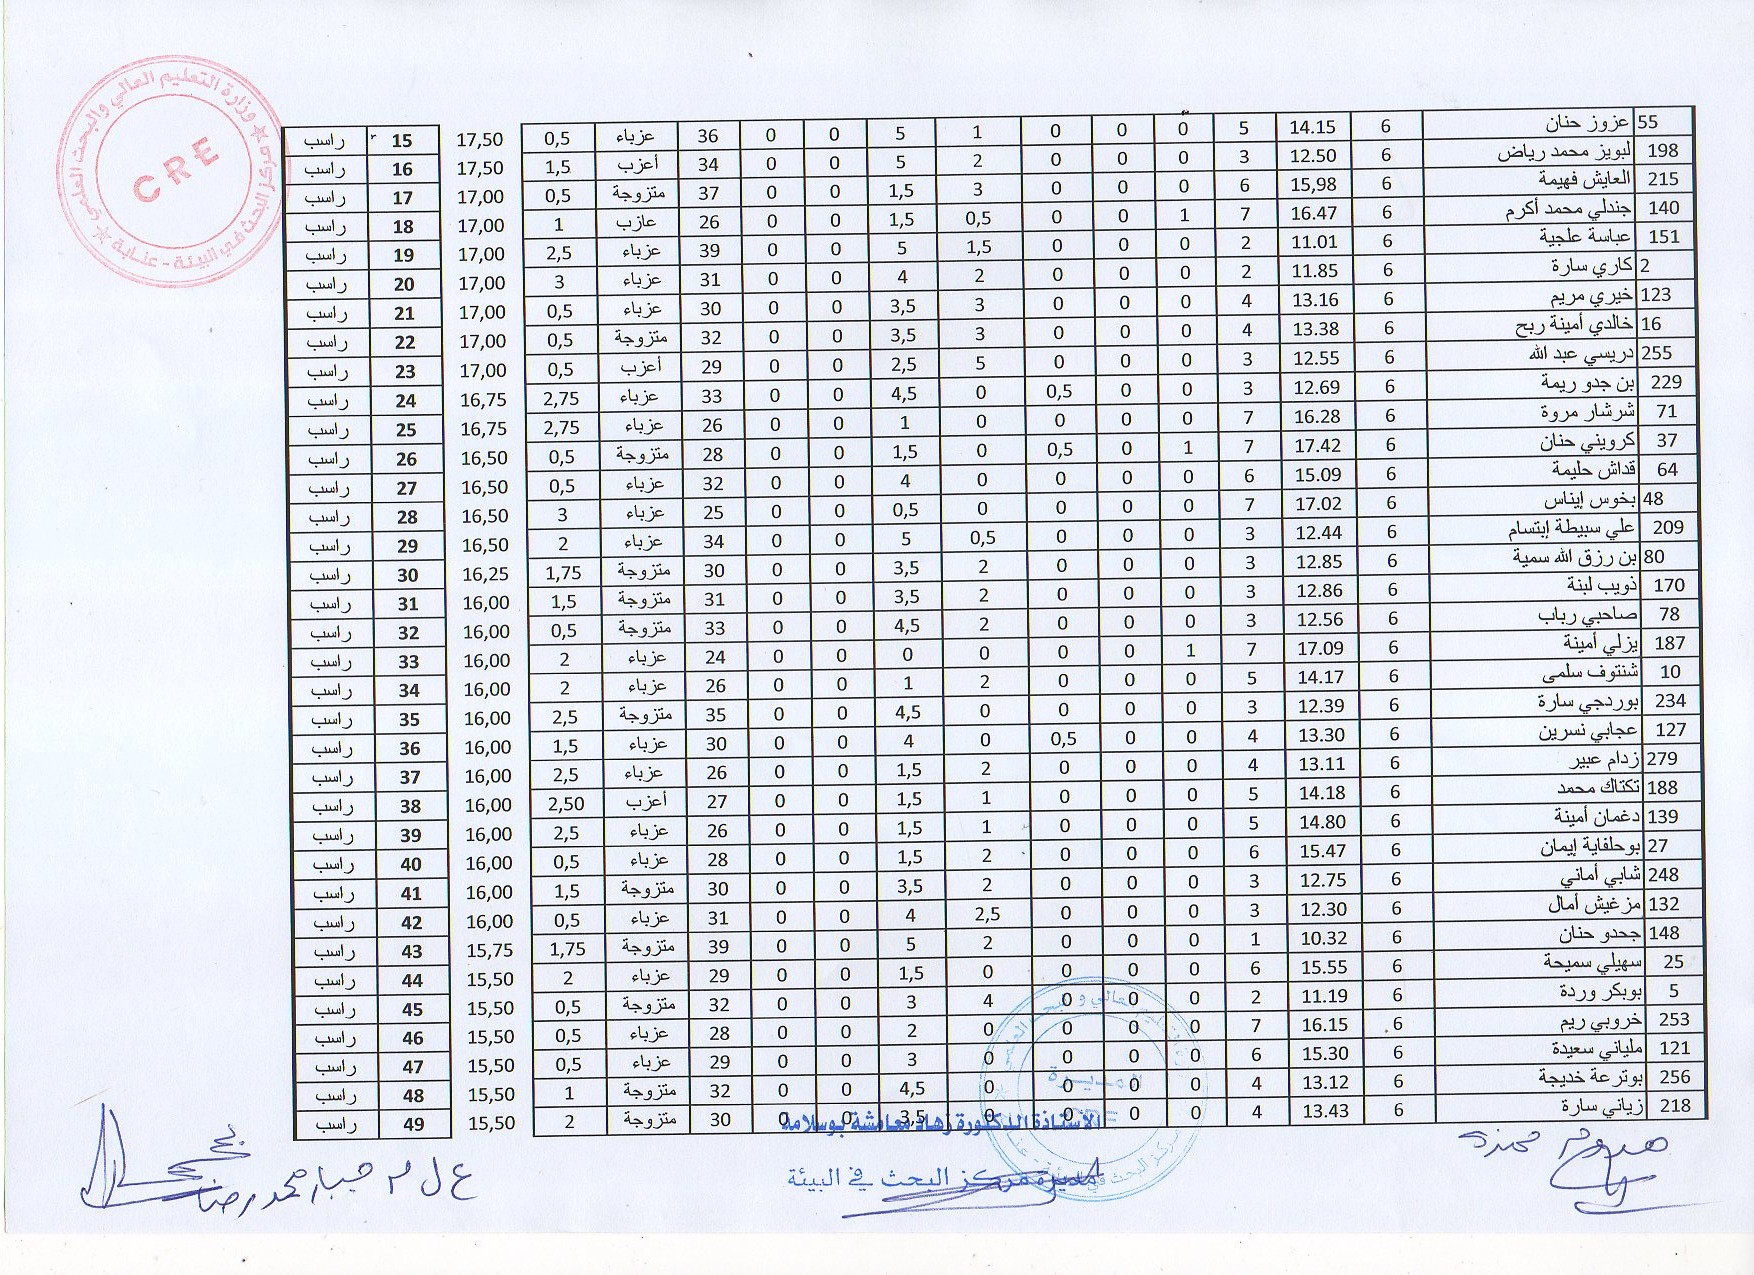 وزارة التعليم العالي والبحث العلمي
مركز البحث في البيئة - عنابة
CRE
55 عزوز حنان 6 14.15 5 0 0 0 1 5 0 0 36 عزباء 0,5 17,50 15 راسب
198 لبويز محمد رياض 6 12.50 3 0 0 0 2 5 0 0 34 أعزب 1,5 17,50 16 راسب
215 العايش فهيمة 6 15,98 6 0 0 0 3 1,5 0 0 37 متزوجة 0,5 17,00 17 راسب
140 جندلي محمد أكرم 6 16.47 7 1 0 0 0,5 1,5 0 0 26 عازب 1 17,00 18 راسب
151 عباسة علجية 6 11.01 2 0 0 0 1,5 5 0 0 39 عزباء 2,5 17,00 19 راسب
2 كاري سارة 6 11.85 2 0 0 0 2 4 0 0 31 عزباء 3 17,00 20 راسب
123 خيري مريم 6 13.16 4 0 0 0 3 3,5 0 0 30 عزباء 0,5 17,00 21 راسب
16 خالدي أمينة ربح 6 13.38 4 0 0 0 3 3,5 0 0 32 متزوجة 0,5 17,00 22 راسب
255 دريسي عبد الله 6 12.55 3 0 0 0 5 2,5 0 0 29 أعزب 0,5 17,00 23 راسب
229 بن جدو ريمة 6 12.69 3 0 0 0,5 0 4,5 0 0 33 عزباء 2,75 16,75 24 راسب
71 شرشار مروة 6 16.28 7 0 0 0 0 1 0 0 26 عزباء 2,75 16,75 25 راسب
37 كرويني حنان 6 17.42 7 1 0 0,5 0 1,5 0 0 28 متزوجة 0,5 16,50 26 راسب
64 قداش حليمة 6 15.09 6 0 0 0 0 4 0 0 32 عزباء 0,5 16,50 27 راسب
48 بخوس إيناس 6 17.02 7 0 0 0 0 0,5 0 0 25 عزباء 3 16,50 28 راسب
209 علي سبيطة إبتسام 6 12.44 3 0 0 0 0,5 5 0 0 34 عزباء 2 16,50 29 راسب
80 بن رزق الله سمية 6 12.85 3 0 0 0 2 3,5 0 0 30 متزوجة 1,75 16,25 30 راسب
170 ذويب لبنة 6 12.86 3 0 0 0 2 3,5 0 0 31 متزوجة 1,5 16,00 31 راسب
78 صاحبي رباب 6 12.56 3 0 0 0 2 4,5 0 0 33 متزوجة 0,5 16,00 32 راسب
187 يزلي أمينة 6 17.09 7 1 0 0 0 0 0 0 24 عزباء 2 16,00 33 راسب
10 شنتوف سلمى 6 14.17 5 0 0 0 2 1 0 0 26 عزباء 2 16,00 34 راسب
234 بوردجي سارة 6 12.39 3 0 0 0 0 4,5 0 0 35 متزوجة 2,5 16,00 35 راسب
127 عجابي نسرين 6 13.30 4 0 0 0,5 0 4 0 0 30 عزباء 1,5 16,00 36 راسب
279 زدام عبير 6 13.11 4 0 0 0 2 1,5 0 0 26 عزباء 2,5 16,00 37 راسب
188 تكتاك محمد 6 14.18 5 0 0 0 1 1,5 0 0 27 أعزب 2,50 16,00 38 راسب
139 دغمان أمينة 6 14.80 5 0 0 0 1 1,5 0 0 26 عزباء 2,5 16,00 39 راسب
27 بوحلفاية إيمان 6 15.47 6 0 0 0 2 1,5 0 0 28 عزباء 0,5 16,00 40 راسب
248 شابي أماني 6 12.75 3 0 0 0 2 3,5 0 0 30 متزوجة 1,5 16,00 41 راسب
132 مزغيش أمال 6 12.30 3 0 0 0 2,5 4 0 0 31 عزباء 0,5 16,00 42 راسب
148 جحدو حنان 6 10.32 1 0 0 0 2 5 0 0 39 متزوجة 1,75 15,75 43 راسب
25 سهيلي سميحة 6 15.55 6 0 0 0 0 1,5 0 0 29 عزباء 2 15,50 44 راسب
5 بوبكر وردة 6 11.19 2 0 0 0 4 3 0 0 32 متزوجة 0,5 15,50 45 راسب
253 خروبي ريم 6 16.15 7 0 0 0 0 2 0 0 28 عزباء 0,5 15,50 46 راسب
121 ملياني سعيدة 6 15.30 6 0 0 0 0 3 0 0 29 عزباء 0,5 15,50 47 راسب
256 بوترعة خديجة 6 13.12 4 0 0 0 0 4,5 0 0 32 متزوجة 1 15,50 48 راسب
218 زياني سارة 6 13.43 4 0 0 0 0 3,5 0 0 30 متزوجة 2 15,50 49 راسب
المديرة
الأستاذة الدكتورة بوسلامة
مديرة مركز البحث في البيئة
ع ل م جبار محمد رضا